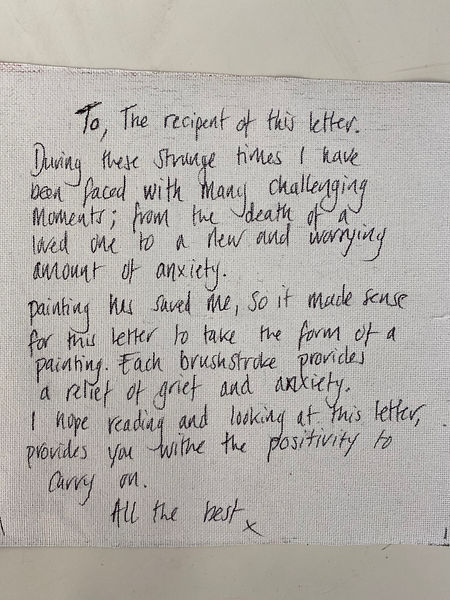 To, The recipent of this letter.
During these strange times I have
been faced with many challenging
moments; from the death of a
loved one to a new and worrying
amount of anxiety.
painting has saved me, so it made sense
for this letter to take the form of a
painting. Each brushstroke provides
a relief of grief and anxiety.
I hope reading and looking at this letter,
provides you withe the positivity to
carry on.
All the best x